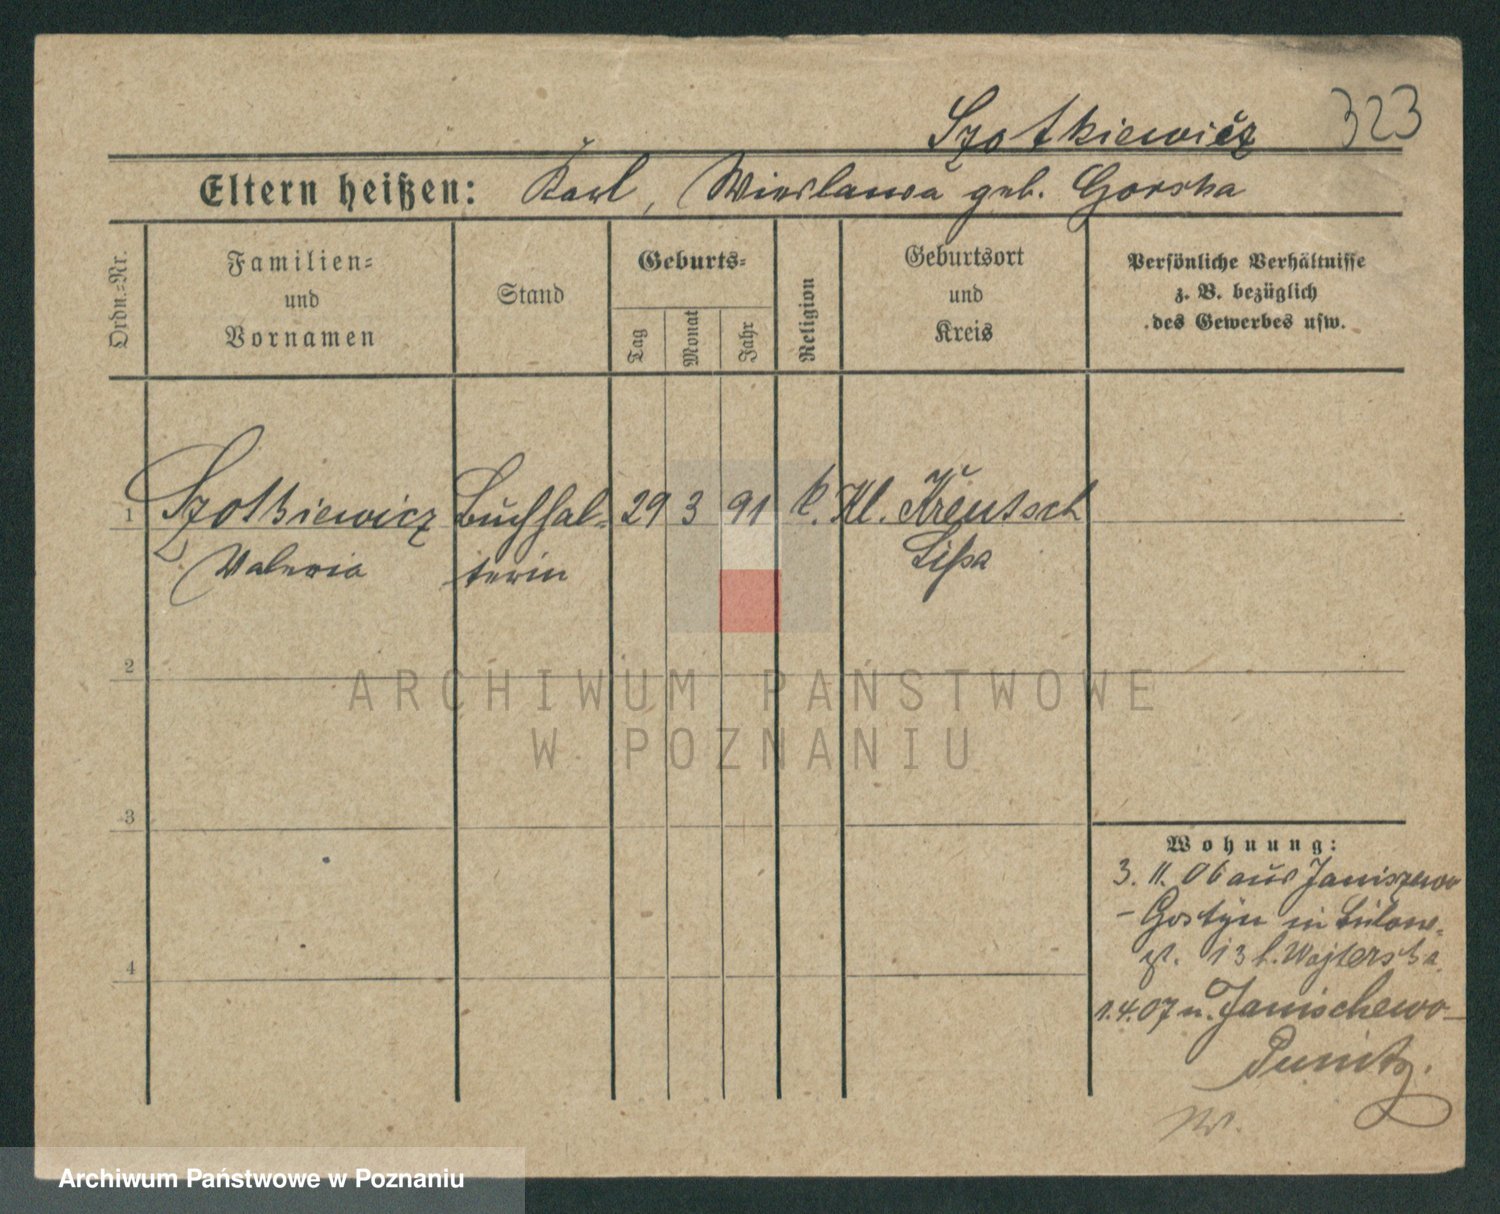 Szotkiewicz 323
Eltern heißen: Karl, Wieslawa geb. Gorska
Ordn.=Nr.
Familien=
und
Vornamen
Stand
Geburts=
Tag
Monat
Jahr
Religion
Geburtsort
und
Kreis
Persönliche Verhältnisse
z. B. bezüglich
des Gewerbes usw.
1 Szotkiewicz Buchhal= 29 3 91 k. Kl. Kreutsch
Valeria terin Lissa
2
3
4
Wohnung:
3. 11. 06 aus Janiszewo
- Gostyn in
13 b. Wojterska
1.4.07 n. Janischewo-
Punitz.
W.
ARCHIWUM PAŃSTWOWE
W POZNANIU
Archiwum Państwowe w Poznaniu